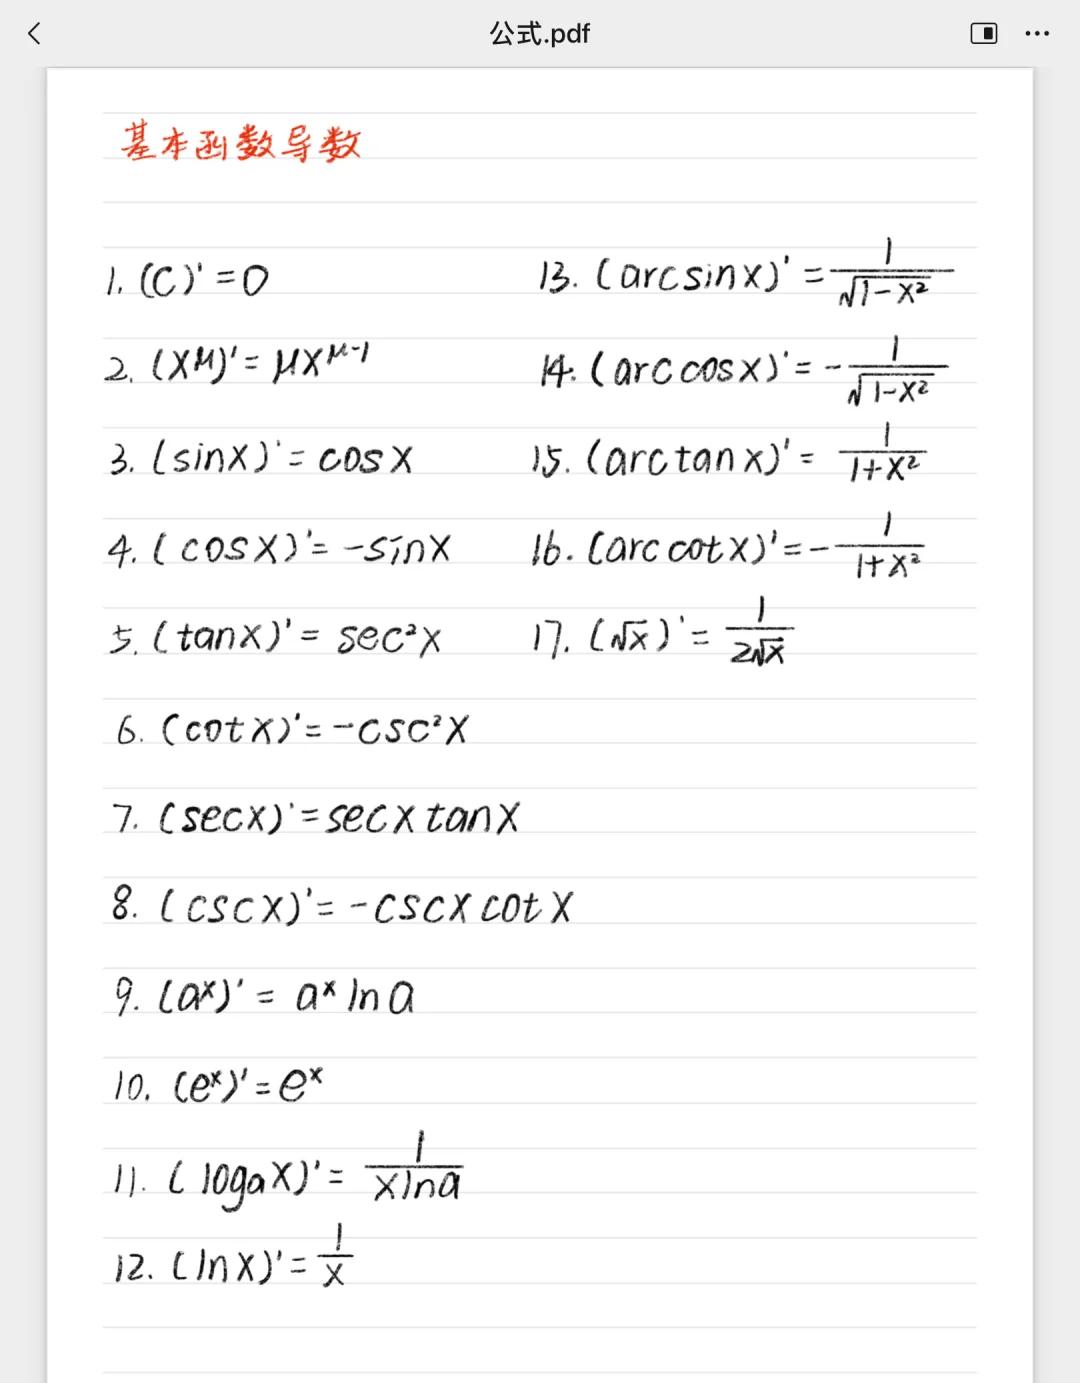 公式.pdf
基本函数导数
1. (C)' = 0
2. (x^μ)' = μx^{μ-1}
3. (sinx)' = cosx
4. (cosx)' = -sinx
5. (tanx)' = sec²x
6. (cotx)' = -csc²x
7. (secx)' = secxtanx
8. (cscx)' = -cscxcotx
9. (a^x)' = a^x lna
10. (e^x)' = e^x
11. (logax)' = 1/(xlna)
12. (lnx)' = 1/x
13. (arcsinx)' = 1/√(1-x²)
14. (arccosx)' = -1/√(1-x²)
15. (arctanx)' = 1/(1+x²)
16. (arccotx)' = -1/(1+x²)
17. (√x)' = 1/(2√x)